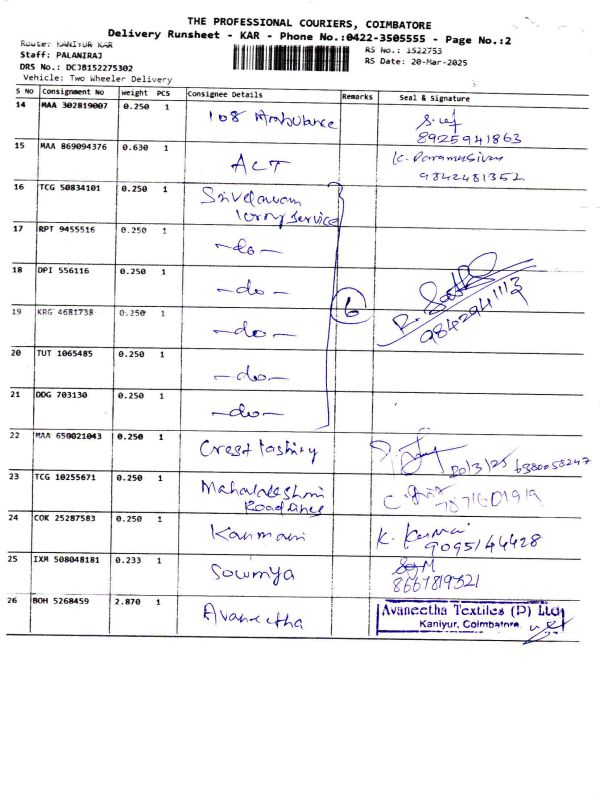 THE PROFESSIONAL COURIERS, COIMBATORE
Delivery Runsheet - KAR - Phone No.:0422-3505555 - Page No.:2
Route: KANIYUR KAR
RS No.: 1522753
Staff: PALANIRAJ
RS Date: 20-Mar-2025
DRS No.: DCJB152275302
Vehicle: Two Wheeler Delivery
S No Consignment No Weight PCS Consignee Details Remarks Seal & Signature
14 MAA 302819007 0.250 1 108 Ambulance
8925941863
15 MAA 869094376 0.630 1 ACT K. Paramasivan
9842481352
16 TCG 50834101 0.250 1 Srivelavam
lorry service
17 RPT 9455516 0.250 1 -do-
18 DPI 556116 0.250 1 -do-
6
9842941113
19 KRG 4681738 0.250 1 -do-
20 TUT 1065485 0.250 1 -do-
21 DDG 703130 0.250 1 -do-
22 MAA 650021043 0.250 1 Crest
20/3/25 6380058247
23 TCG 10255671 0.250 1 Mahalakshmi
Roadlines
24 COK 25287583 0.250 1 Kanmani K. Kanmani
9095144428
25 IXM 508048181 0.233 1 Sowmya
26 BOH 5268459 2.870 1 Avaneetha Avaneetha Textiles (P) Ltd
Kaniyur, Coimbatore